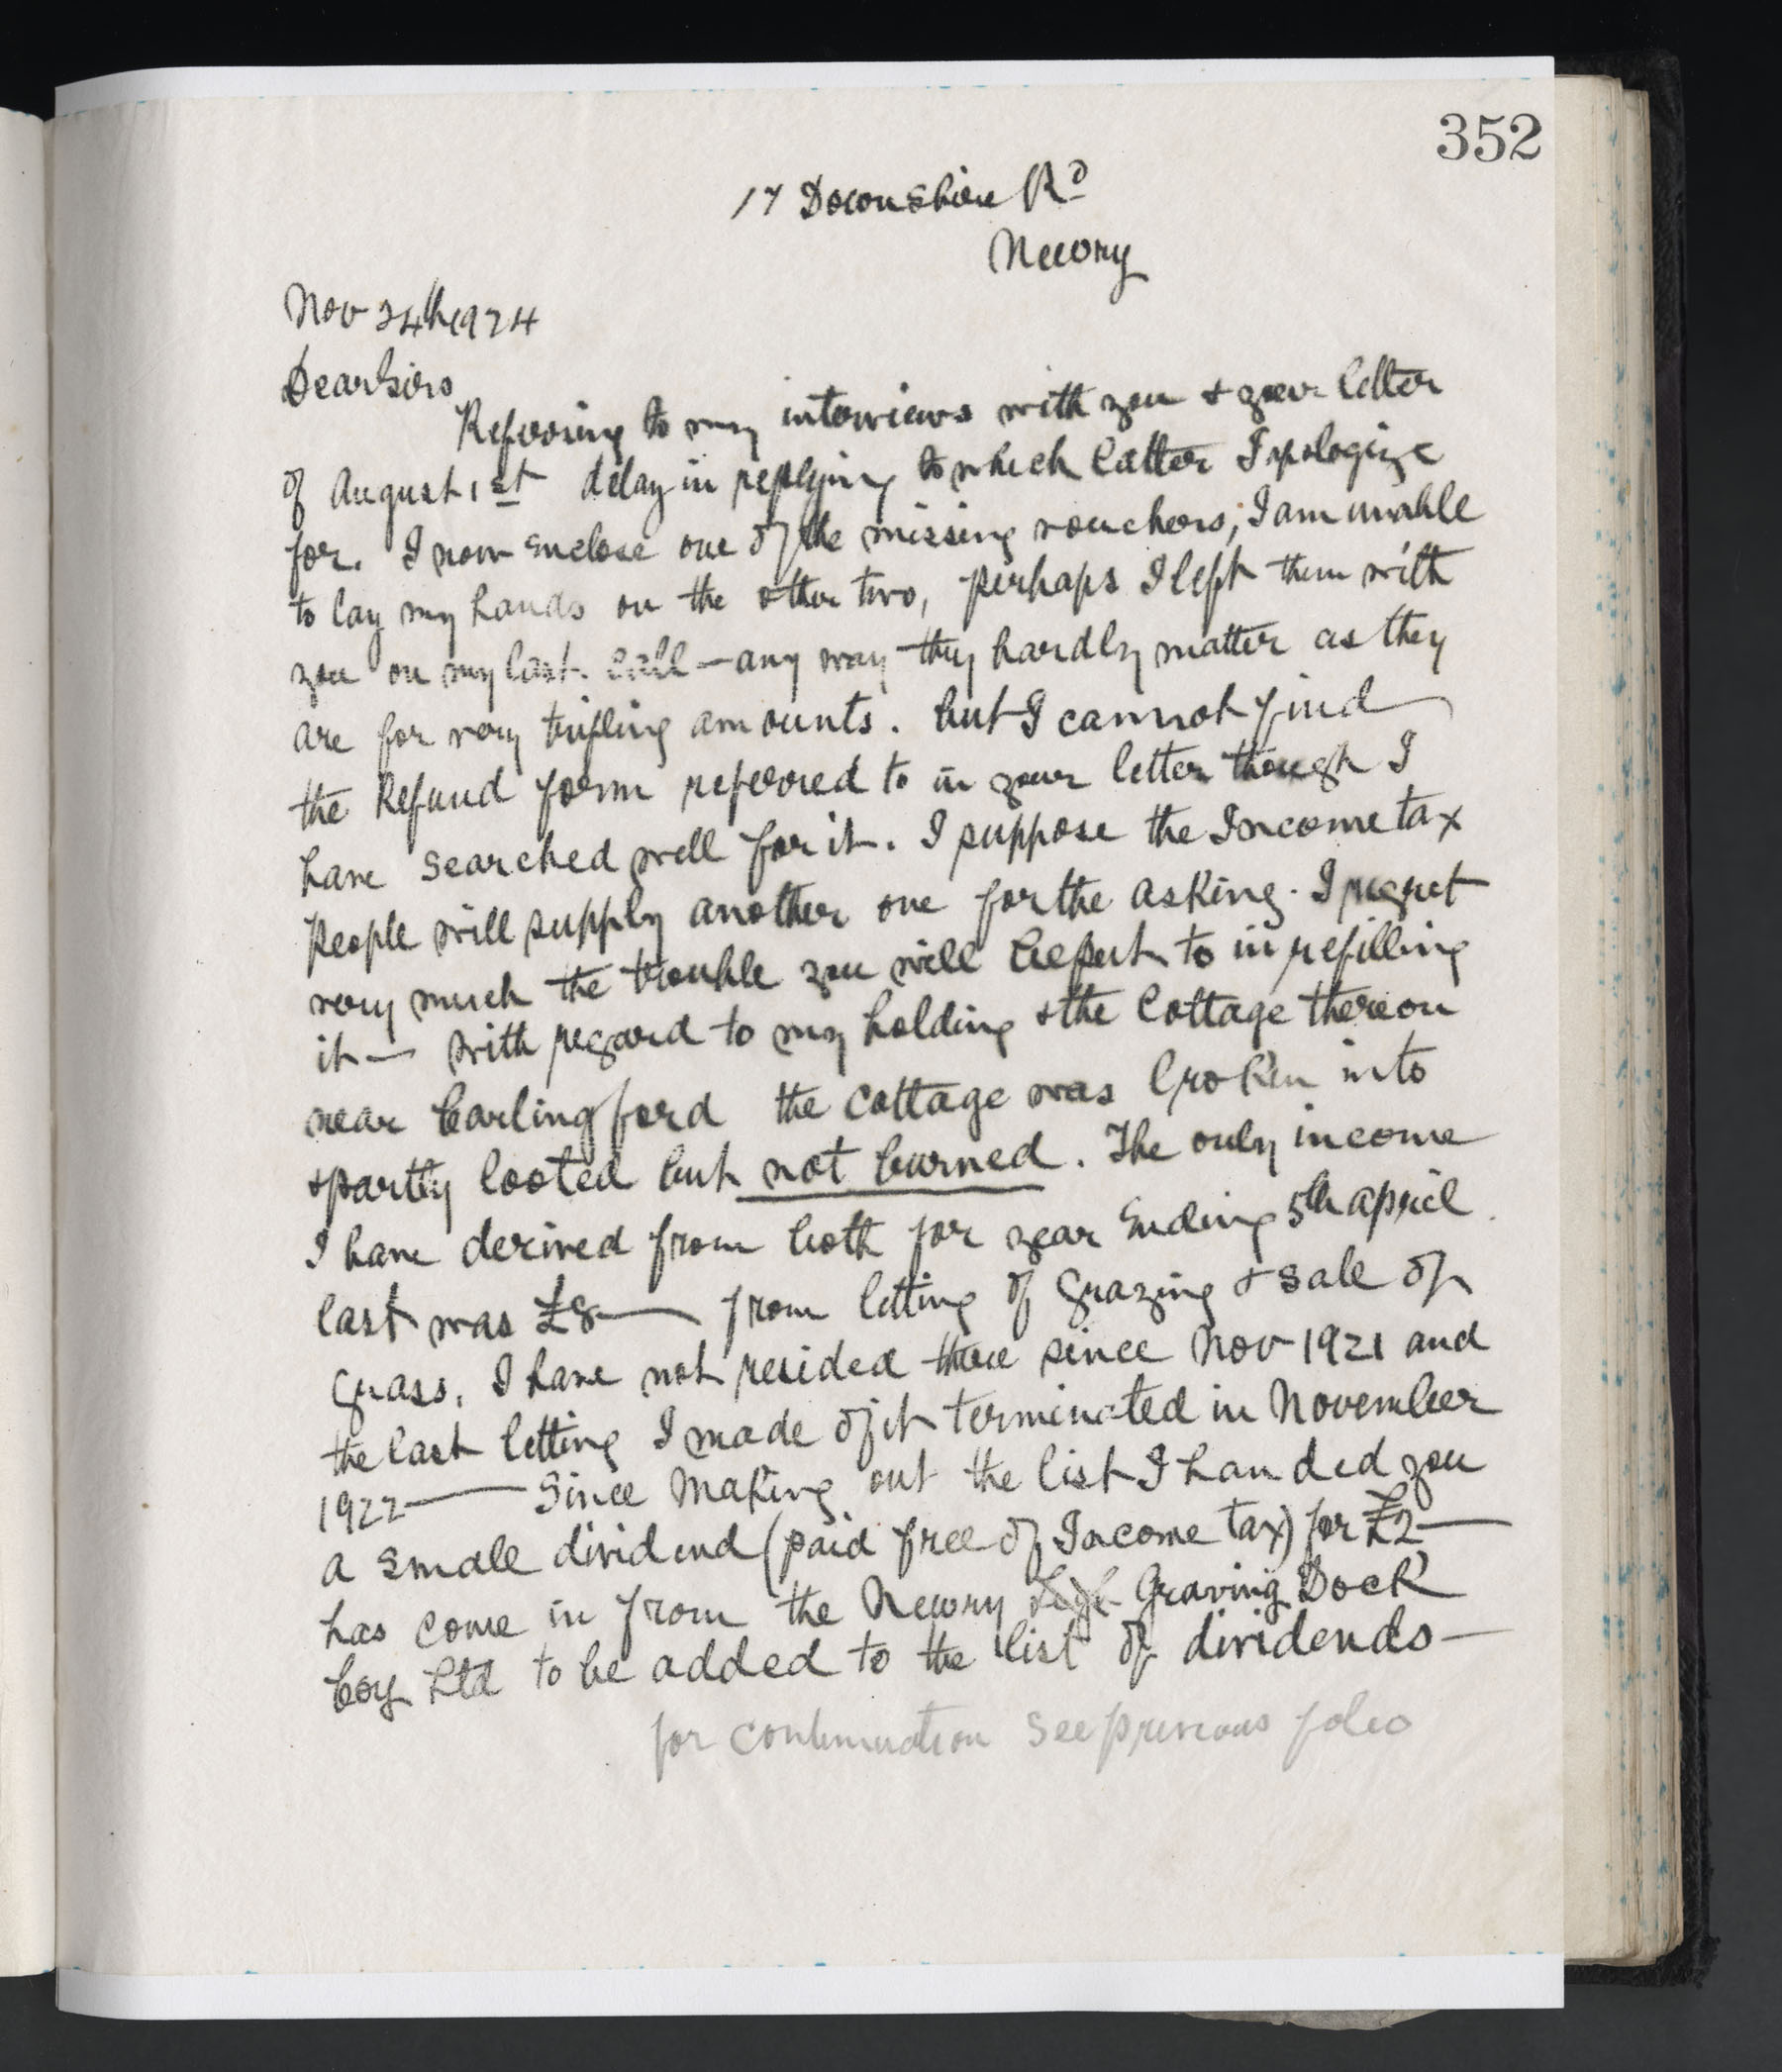 352
17 Downshire Rd
Newry
Nov 24th 1924
Dear Sirs
Referring to my interviews with you & your letter
of August 1st delay in replying to which latter I apologize
for. I now enclose one of the missing vouchers, I am unable
to lay my hands on the other two, perhaps I left them with
you on my last call — any way they hardly matter as they
are for very trifling amounts. but I cannot find
the Refund form referred to in your letter though I
have searched well for it. I suppose the Income tax
people will supply another one for the asking. I regret
very much the trouble you will be put to in refilling
it — With regard to my holding & the Cottage thereon
near Carlingford the cottage was broken into
& partly looted but not burned. The only income
I have derived from both for year Ending 5th april
last was £8 — from letting of grazing & sale of
grass. I have not resided there since Nov 1921 and
the last letting I made of it terminated in November
1922 — Since Making out the list I handed you
a small dividend (paid free of Income tax) for £2 —
has come in from the Newry Graving Dock
Coy Ltd to be added to the list of dividends —
for continuation see previous folio